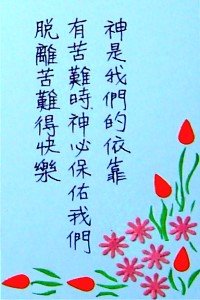 神是我們的依靠
有苦難時神必保佑我們
脫離苦難得快樂